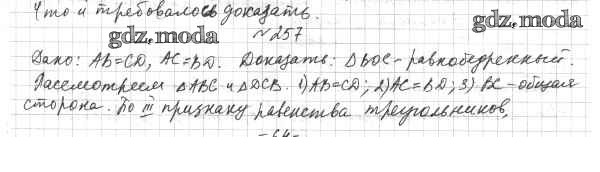 Что и требовалось доказать.
gdz.moda
gdz.moda
№257
Дано: AB=CD, AC=BD. Доказать: ΔBOC - равнобедренный.
Рассмотреем ΔABC и ΔDCB. 1) AB=CD; 2) AC=BD; 3) BC - общая
сторона. По III признаку равенства треугольников,
-64-